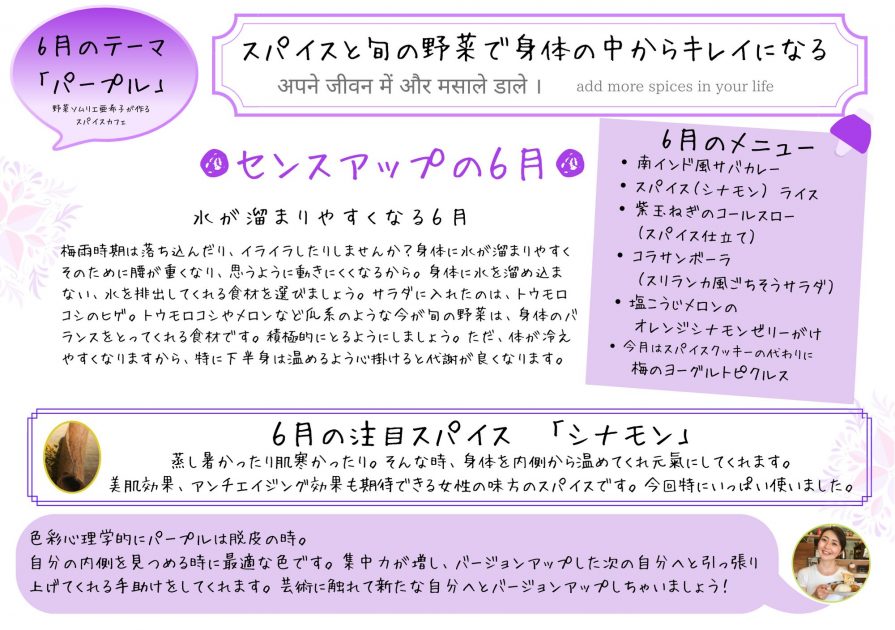 6月のテーマ
「パープル」
野菜ソムリエ亜希子が作る
スパイスカフェ
スパイスと旬の野菜で身体の中からキレイになる
अपने जीवन में और मसाले डाले ।
add more spices in your life
センスアップの6月
水が溜まりやすくなる6月
梅雨時期は落ち込んだり、イライラしたりしませんか?身体に水が溜まりやすく
そのために腰が重くなり、思うように動きにくくなるから。身体に水を溜め込ま
ない、水を排出してくれる食材を選びましょう。サラダに入れたのは、トウモロ
コシのヒゲ。トウモロコシやメロンなど瓜系のような今が旬の野菜は、身体のバ
ランスをとってくれる食材です。積極的にとるようにしましょう。ただ、体が冷え
やすくなりますから、特に下半身は温めるよう心掛けると代謝が良くなります。
6月のメニュー
• 南インド風サバカレー
• スパイス(シナモン) ライス
• 紫玉ねぎのコールスロー
(スパイス仕立て)
• コラサンボーラ
(スリランカ風ごちそうサラダ)
• 塩こうじメロンの
オレンジシナモンゼリーがけ
• 今月はスパイスクッキーの代わりに
梅のヨーグルトピクルス
6月の注目スパイス 「シナモン」
蒸し暑かったり肌寒かったり。そんな時、身体を内側から温めてくれ元氣にしてくれます。
美肌効果、アンチエイジング効果も期待できる女性の味方のスパイスです。今回特にいっぱい使いました。
色彩心理学的にパープルは脱皮の時。
自分の内側を見つめる時に最適な色です。集中力が増し、バージョンアップした次の自分へと引っ張り
上げてくれる手助けをしてくれます。芸術に触れて新たな自分へとバージョンアップしちゃいましょう!